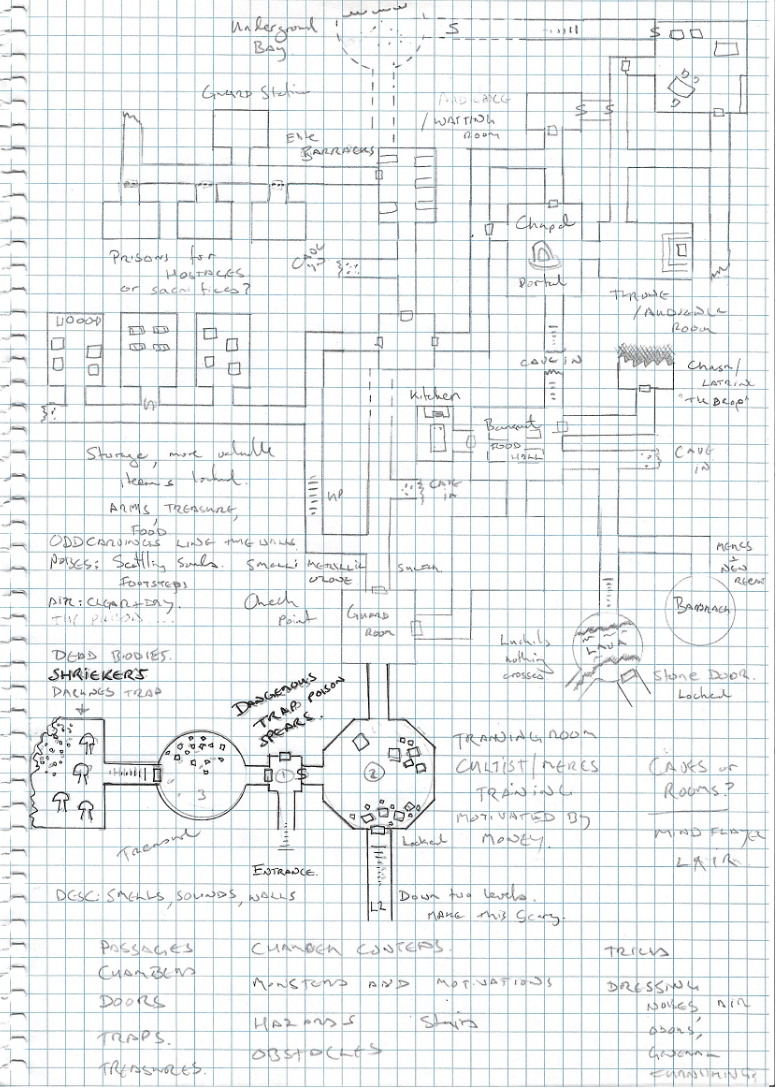 Underground
Bay
S
S
Guard Station
/WAITING
ROOM
S S
BARRACKS
Chapel
Portal
PRISONS for
HOSTAGES
or sacrifices?
THRONE
/AUDIENCE
ROOM
CAVE IN
Chasm/
LATRINE
"THE DROP"
Kitchen
Banquet
FOOD
HALL
CAVE
IN
Storage, more valuable
items locked.
ARMS, TREASURE,
FOOD
UP
CAVE
IN
ODD CARVINGS LINE THE WALLS
NOISES: Scuttling Sounds.
FOOTSTEPS
SMELL: METALLIC
OZONE
AIR: CLEAR + DRY.
Check
Point
GUARD
ROOM
MERCS
+
NEW
LAVA
Luckily
nothing
crossed
Stone Door.
Locked
DEAD BODIES.
SHRIEKERS
DARKNESS TRAP
DANGEROUS
TRAP POISON
SPEARS.
1
S
2
3
Treasure
ENTRANCE.
TRAINING ROOM
CULTIST/MERCS
TRAINING
MOTIVATED BY
MONEY.
CAVES or
ROOMS?
MIND FLAYER
LAIR
Locked
DESC: SMELLS, SOUNDS, WALLS
L2
Down two levels.
MAKE this Scary.
PASSAGES
CHAMBERS
DOORS
TRAPS.
TREASURES.
CHAMBER CONTENTS.
MONSTERS AND MOTIVATIONS
HAZARDS
Stairs
OBSTACLES
TRICKS
DRESSING
NOISES, AIR
ODORS,
GENERAL
FURNISHINGS